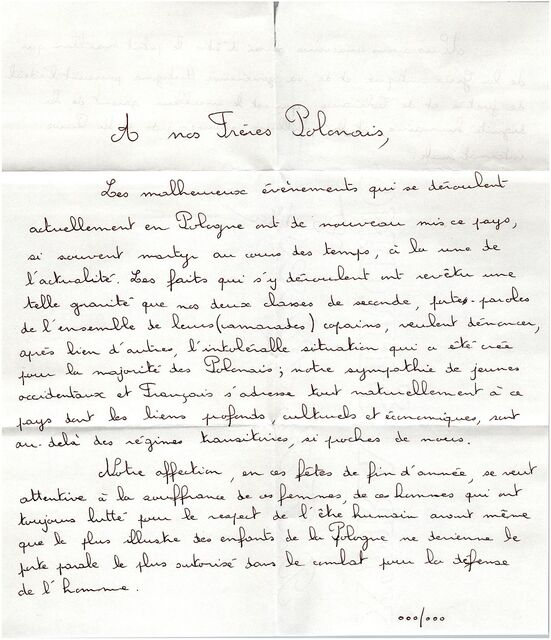 A nos Frères Polonais,
Les malheureux évènements qui se déroulent
actuellement en Pologne ont de nouveau mis ce pays,
si souvent martyr au cours des temps, à la une de
l'actualité. Les faits qui s'y déroulent ont revêtu une
telle gravité que nos deux classes de seconde, portes-paroles
de l'ensemble de leurs (camarades) copains, veulent dénoncer,
après bien d'autres, l'intolérable situation qui a été créée
pour la majorité des Polonais ; notre sympathie de jeunes
occidentaux et Français s'adresse tout naturellement à ce
pays dont les liens profonds, culturels et économiques, sont
au-delà des régimes transitoires, si proches de nous.
Notre affection, en ces fêtes de fin d'année, se veut
attentive à la souffrance de ces femmes, de ces hommes qui ont
toujours lutté pour le respect de l'être humain avant même
que le plus illustre des enfants de la Pologne ne devienne le
porte parole le plus autorisé dans le combat pour la défense
de l'homme.
ooo/ooo